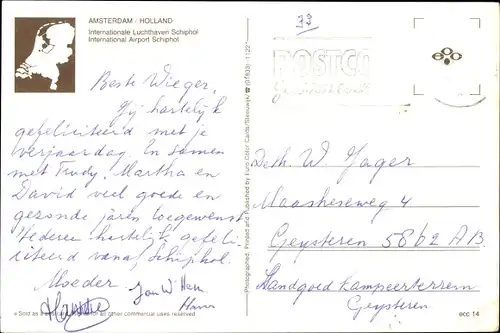 AMSTERDAM / HOLLAND
Internationale Luchthaven Schiphol
International Airport Schiphol
Beste Wieger,
Zij hartelijk
gefeliciteerd met je
verjaardag. En samen
met Trudy, Martha en
David veel goede en
gezonde jaren toegewenst
Iederen hartelijk gefeli-
citeerd vanaf Schiphol.
Moeder. Jan W Hans
Hans
Sold as
for all other commercial uses reserved
Photographed, Printed and Published by Euro Color Cards/
POSTCO
Dhr. W Jager
Maasheseweg 4
Geysteren 5862 AB
Landgoed Kampeerterrein
Geysteren
ecc 14